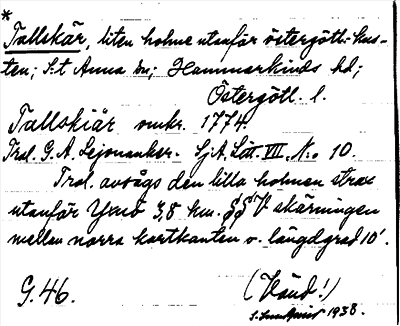 *
Tallskär, liten holme utanför östergötl.-kus-
ten; S:t Anna sn; Hammarkinds hd;
Östergötl. l.
Tallskiär omkr. 1774.
Trol. G. A. Lejonanker. Sj.A. Litt VII. N:o 10.
Trol. avsågs den lilla holmen strax
utanför Yxnö 3,8 km. SSV skärningen
mellan norra kartkanten o. längdgrad 10'.
G. 46.
(Vänd!)
S. Lundqvist 1938.